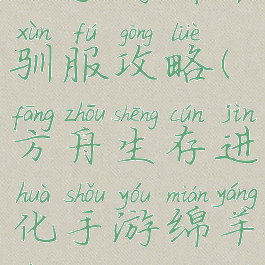 xùn fú gōng lüè
驯服攻略(
fāng zhōu shēng cún jìn
方舟生存进
huà shǒu yóu mián yáng
化手游绵羊